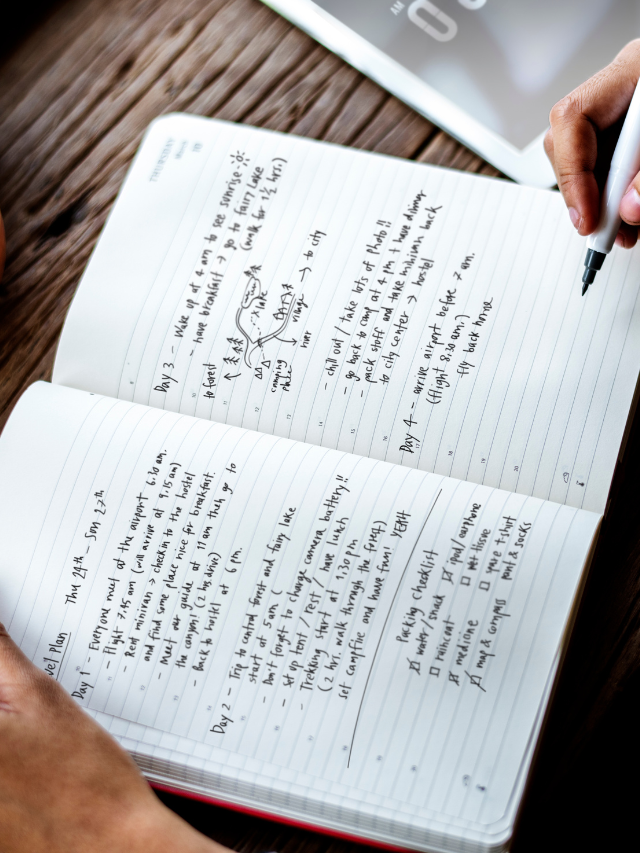 vel Plan Thu 24th - Sun 27th
Day 1 - Everyone meet at the airport 6.30 am.
- Flight 7.45 am (will arrive at 9.15 am)
- Rent minivan → checkin to the hostel
and find some place nice for breakfast.
- Meet our guide at 11 am then go to
the canyon! (2 hr. drive)
- Back to hostel at 6 pm.
Day 2 - Trip to central forest and fairy lake
start at 5 am
- Don't forget to charge camera battery!!
- Set up tent / rest / have lunch
- Trekking start at 1.30 pm
(2 hr. walk through the forest)
set campfire and have fun! YEAH
Packing Checklist
water / snack
raincoat
medicine
map & compass
ipod / earphone
wet tissue
spare t-shirt
pant & socks
THURSDAY
Day 3 - Wake up at 4 am to see sunrise
- have breakfast → go to fairy lake
(walk for 1 1/2 hrs.)
to forest
x lake
camping place
village → to city
river
- chill out / take lots of photo!!
- go back to camp at 4 pm + have dinner
- pack stuff and take minivan back
to city center → hostel
Day 4 - arrive airport before 7 am.
(flight 8.30 am.)
fly back home
AM